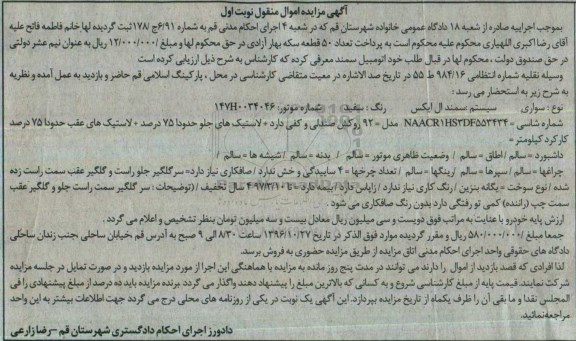 آگهی مزایده اموال منقول نوبت اول
بموجب اجراییه صادره از شعبه ۱۸ دادگاه عمومی خانواده شهرستان قم که در شعبه ۴ اجرای احکام مدنی قم به شماره ۶/۹۱ج/۱۷۸ ثبت گردیده لها خانم فاطمه فاتح علیه
آقای رضا اکبری اللهیاری محکوم علیه محکوم است به پرداخت تعداد ۵۰ قطعه سکه بهار آزادی در حق محکوم لها و مبلغ /۱۲/۰۰۰/۰۰۰ ریال به عنوان نیم عشر دولتی
در حق صندوق دولت، محکوم لها در قبال طلب خود اتومبیل سمند معرفی کرده که کارشناس به شرح ذیل ارزیابی کرده است
وسیله نقلیه شماره انتظامی ۱۶/ ۹۸۴ ط ۵۵ در تاریخ صد الاشاره در معیت متقاضی کارشناسی در محل، پارکینگ اسلامی قم حاضر و بازدید به عمل آمده و نظریه
به شرح زیر به استحضار می رسد:
نوع: سواری سیستم سمند ال ایکس رنگ: سفید شماره موتور: ۱۴۷H۰۰۳۴۰۴۶
شماره شاسی = NAACR۱HS۳DF۵۵۳۴۳۴ مدل = ۹۲ روکش صندلی و کفی دارد + لاستیک های جلو حدودا ۷۵ درصد + لاستیک های عقب حدودا ۷۵ درصد
کارکرد کیلومتر =
داشبورد = سالم / اطاق = سالم / وضعیت ظاهری موتور = سالم / بدنه = سالم / شیشه ها = سالم /
چراغها = سالم / سپرها = سالم / رینگها = سالم / تعداد چرخها = ۴ ساییدگی و خش ندارد / صافکاری نیاز دارد= سر گلگیر جلو راست و گلگیر عقب سمت راست زده
شده / نوع سوخت = یگانه بنزین / رنگ کاری نیاز ندارد / زاپاس دارد / بیمه دارد -تا ۹۷/۳/۱۰ ۴ سال تخفیف / (توضیحات: سر گلگیر سمت راست جلو و گلگیر عقب
سمت چپ (راننده) کمی تو رفتگی دارد بدون رنگ صافکاری می شود.
ارزش پایه خودرو با عنایت به مراتب فوق دویست و سی میلیون ریال معادل بیست و سه میلیون تومان بنظر تشخیص و اعلام می گردد.
جمعا مبلغ /۵۸۰/۰۰۰/۰۰۰ ریال و مقرر گردیده موارد فوق الذکر در تاریخ ۱۳۹۶/۱۰/۲۷ ساعت ۸/۳۰ الی ۹ صبح به آدرس قم ،خیابان ساحلی ،جنب زندان ساحلی
دادگاه های حقوقی واحد اجرای احکام مدنی اتاق مزایده از طریق مزایده حضوری به فروش برسد.
لذا افرادی که قصد بازدید از اموال را دارند می توانند در مدت پنج روز مانده به مزایده با هماهنگی این اجرا از مورد مزایده بازدید و در صورت تمایل در جلسه مزایده
شرکت نمایند. قیمت پایه از مبلغ کارشناسی شروع و به کسانی که بالاترین مبلغ را پیشنهاد دهند واگذار می گردد برنده مزایده باید ده درصد از مبلغ پیشنهادی را فی
المجلس نقدا و ما بقی آن را ظرف یکماه از تاریخ مزایده بپردازد. این آگهی یک نوبت در یکی از روزنامه های محلی درج می گردد جهت اطلاعات بیشتر به این واحد
مراجعه نمائید.
دادورز اجرای احکام دادگستری شهرستان قم -رضا زارعی